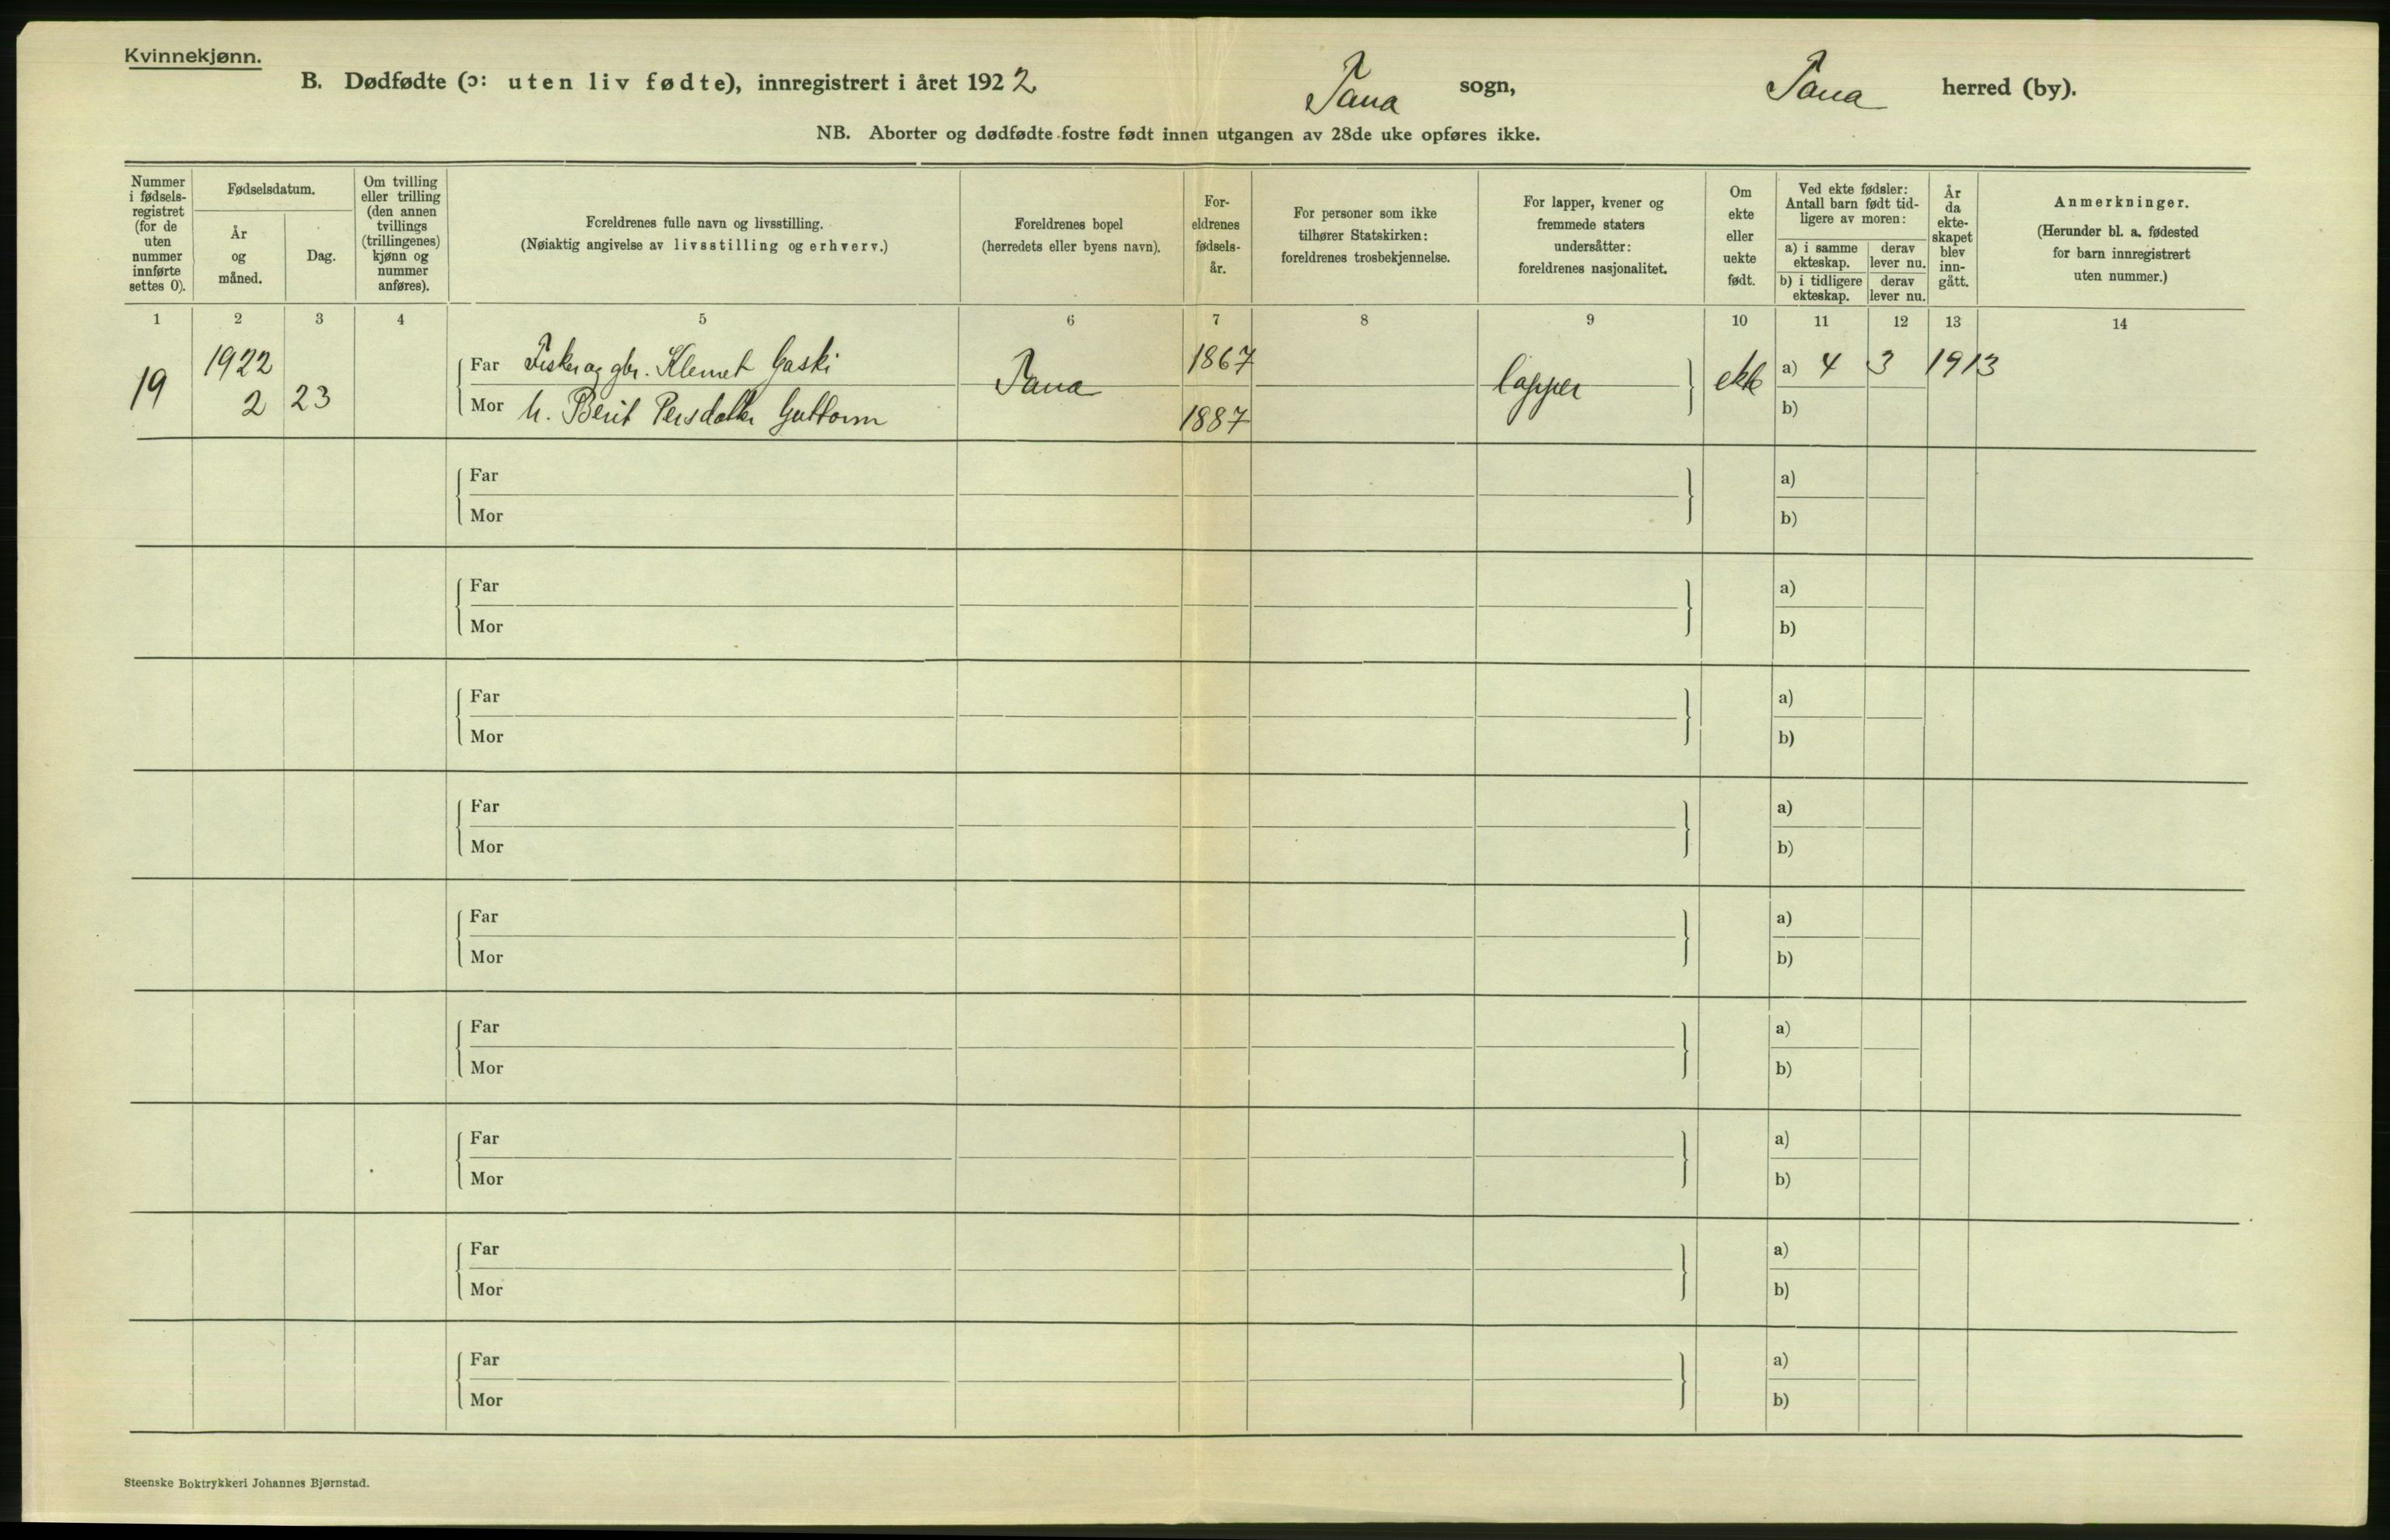 Kvinnekjønn.
B. Dødfødte (ɔ: uten liv fødte), innregistrert i året 1922 Tana sogn, Tana herred (by).
NB. Aborter og dødfødte fostre født innen utgangen av 28de uke opføres ikke.
Nummer
i fødsels-
registret
(for de
uten
nummer
innførte
settes 0).
Fødselsdatum.
År
og
måned.
Dag.
Om tvilling
eller trilling
(den annen
tvillings
(trillingenes)
kjønn og
nummer
anføres).
Foreldrenes fulle navn og livsstilling.
(Nøiaktig angivelse av livsstilling og erhverv.)
Foreldrenes bopel
(herredets eller byens navn).
For-
eldrenes
fødsels-
år.
For personer som ikke
tilhører Statskirken:
foreldrenes trosbekjennelse.
For lapper, kvener og
fremmede staters
undersåtter:
foreldrenes nasjonalitet.
Om
ekte
eller
uekte
født.
Ved ekte fødsler:
Antall barn født tid-
ligere av moren:
a) i samme
ekteskap.
derav
lever nu.
b) i tidligere
ekteskap.
derav
lever nu.
År
da
ekte-
skapet
blev
inn-
gått.
Anmerkninger.
(Herunder bl. a. fødested
for barn innregistrert
uten nummer.)
1 2 3 4 5 6 7 8 9 10 11 12 13 14
19 1922 2 23
Far Fisker og gbr. Klemet Gaski
Mor h. Berit Persdatter Guttorm
Tana
1867
1887
lapper
ekte
a) 4 3 1913
b)
Far a)
Mor b)
Far a)
Mor b)
Far a)
Mor b)
Far a)
Mor b)
Far a)
Mor b)
Far a)
Mor b)
Far a)
Mor b)
Far a)
Mor b)
Far a)
Mor b)
Steenske Boktrykkeri Johannes Bjørnstad.